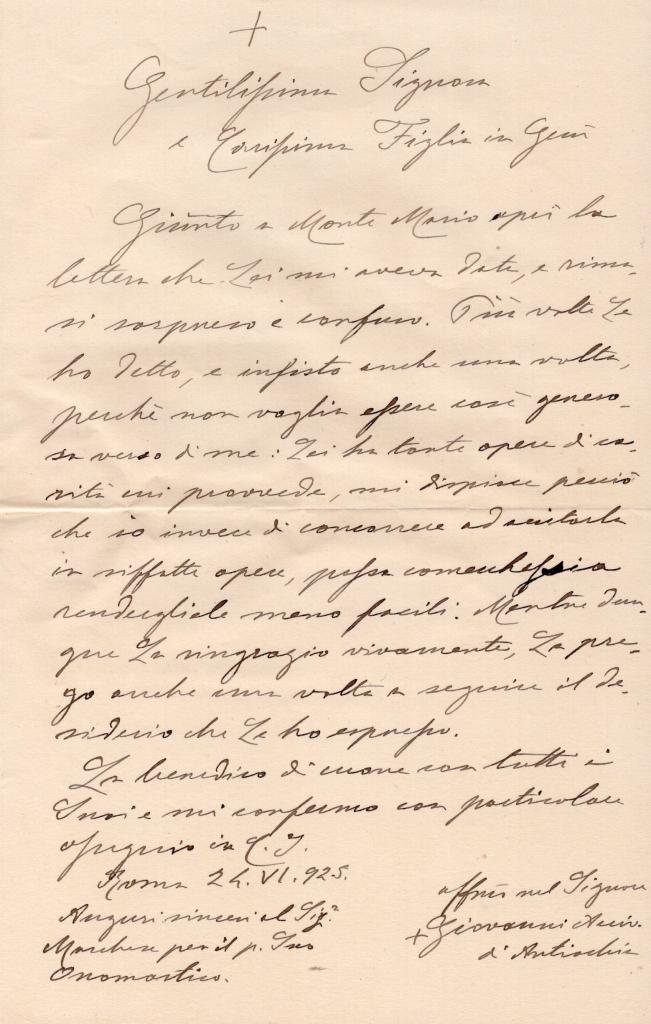 +
Gentilissima Signora
e Carissima Figlia in Gesù
Giunto a Monte Mario aprii la
lettera che Lei mi aveva data, e rima-
si sorpreso e confuso. Più volte Le
ho detto, e insisto anche una volta,
perchè non voglia essere così genero-
sa verso di me: Lei ha tante opere di ca-
rità cui provvede, mi dispiace perciò
che io invece di concorrere ad aiutarla
in siffatte opere, possa comechessia
rendergliele meno facili. Mentre dun-
que La ringrazio vivamente, La pre-
go anche una volta a seguire il de-
siderio che Le ho espresso.
La benedico di cuore con tutti i
Suoi e mi confermo con particolare
ossequio in C. J.
Roma 24. VI. 925.
Auguri sinceri al Sig.r
Marchese per il p. Suo
Onomastico.
affmo nel Signore
+ Giovanni Arciv.
d'Antiochia